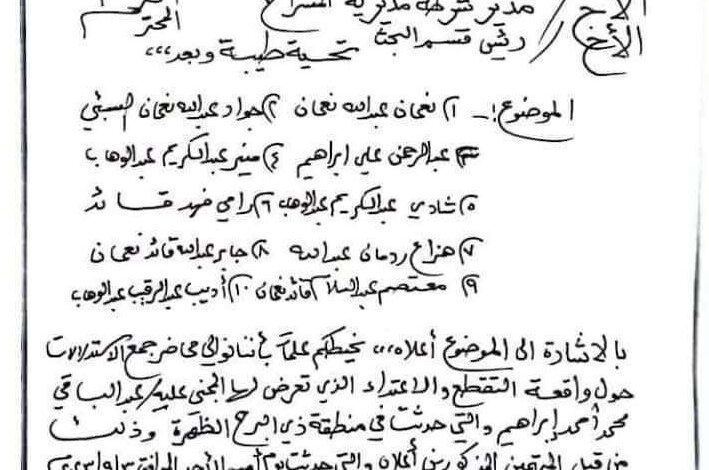 الأخ / مدير شرطة مديرية
المحترم
الأخ / رئيس قسم البحث
تحية طيبة وبعد ,,,
الموضوع :ـ ١) نعمان عبدالله نعمان ٢) جواد عبدالله نعمان
٣) عبدالرحمن علي ابراهيم ٤) منير عبدالكريم عبدالوهاب
٥) شادي عبدالكريم عبدالوهاب ٦) رامي فهد قائد
٧) هزاع ردمان عبدالله ٨) جابر عبدالله قائد نعمان
٩) معتصم عبدالسلام قائد نعمان ١٠) أديب عبدالرقيب عبدالوهاب
بالاشارة الى الموضوع أعلاه ,,, نحيطكم علماً بأننا نوالي محاضر جمع الاستدلالات
حول واقعة التقطع والاعتداء الذي تعرض لها المجني عليه / عبدالباقي
محمد أحمد ابراهيم والتي حدثت في منطقة ذي البرح الظهرة وذلك
من قبل المتهمين المذكورين أعلاه والتي حدثت يوم أمس الأحد الموافق